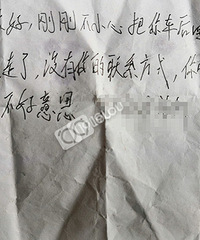 好,刚刚不小心把你车后
走了,没有你的联系方式,你
不好意思